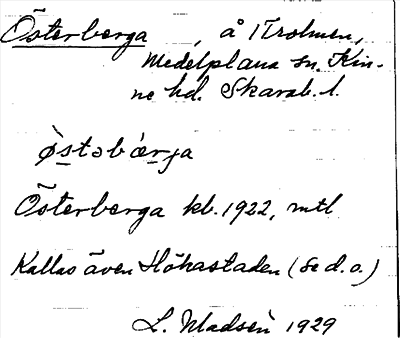 Österberga, å Trolmen,
Medelplana sn. Kin-
ne hd. Skarab. l.
östəbärja
Österberga kb. 1922, mtl
Kallas även Höhastaden (se d.o.)
L. Madsén 1929